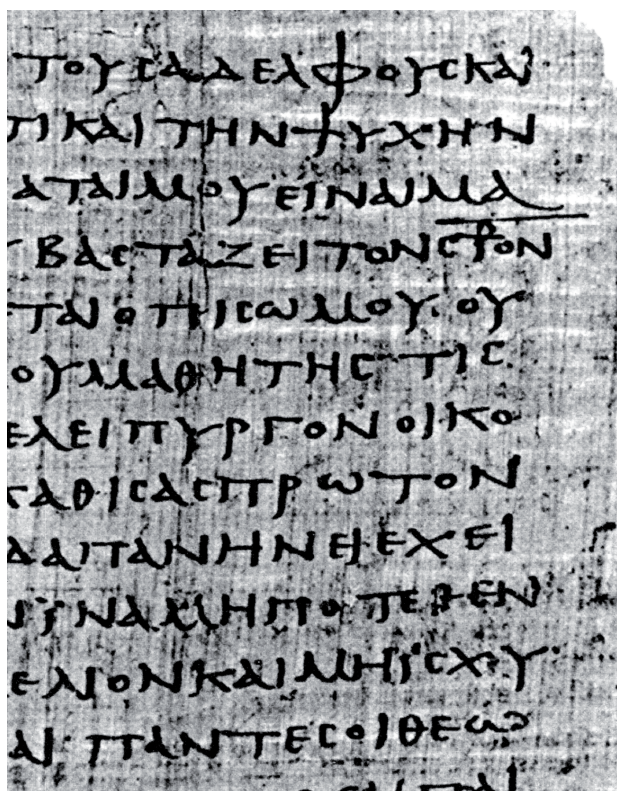 ΤΟΥϹΑΔΕΛΦΟΥϹΚΑΙ
ΤΙΚΑΙΤΗΝΨΥΧΗΝ
ΑΤΑΙΜΟΥΕΙΝΑΙΜΑ
ΒΑϹΤΑΖΕΙΤΟΝϹ⳨ΟΝ
ΤΑΙΟΠΙϹΩΜΟΥ·ΟΥ
ΟΥΜΑΘΗΤΗϹ ΤΙϹ
ΕΛΕΙΠΥΡΓΟΝΟΙΚΟ
ΑΘΙϹΑϹΠΡΩΤΟΝ
ΔΑΠΑΝΗΝΕΙΕΧΕΙ
ΪΝΑΜΗΠΟΤΕΘΕΝ
ΕΛΙΟΝΚΑΙΜΗΪϹΧΥ
ΑΙΠΑΝΤΕϹΟΙΘΕΩ